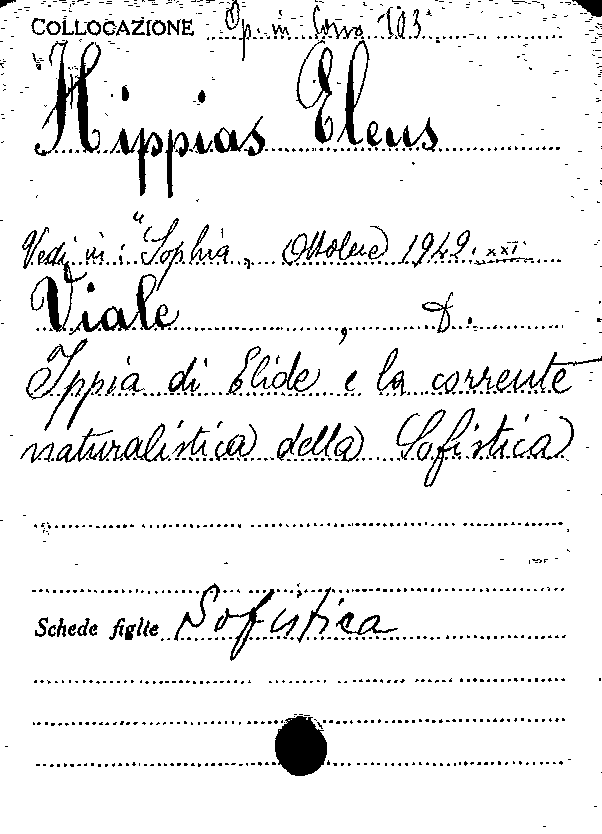 COLLOCAZIONE Op. in Corso 103
Hippias Eleus
Vedi in: "Sophia„ Ottobre 1942. XXI
Viale, D.
Ippia di Elide e la corrente
naturalistica della Sofistica
Schede figlie Sofistica